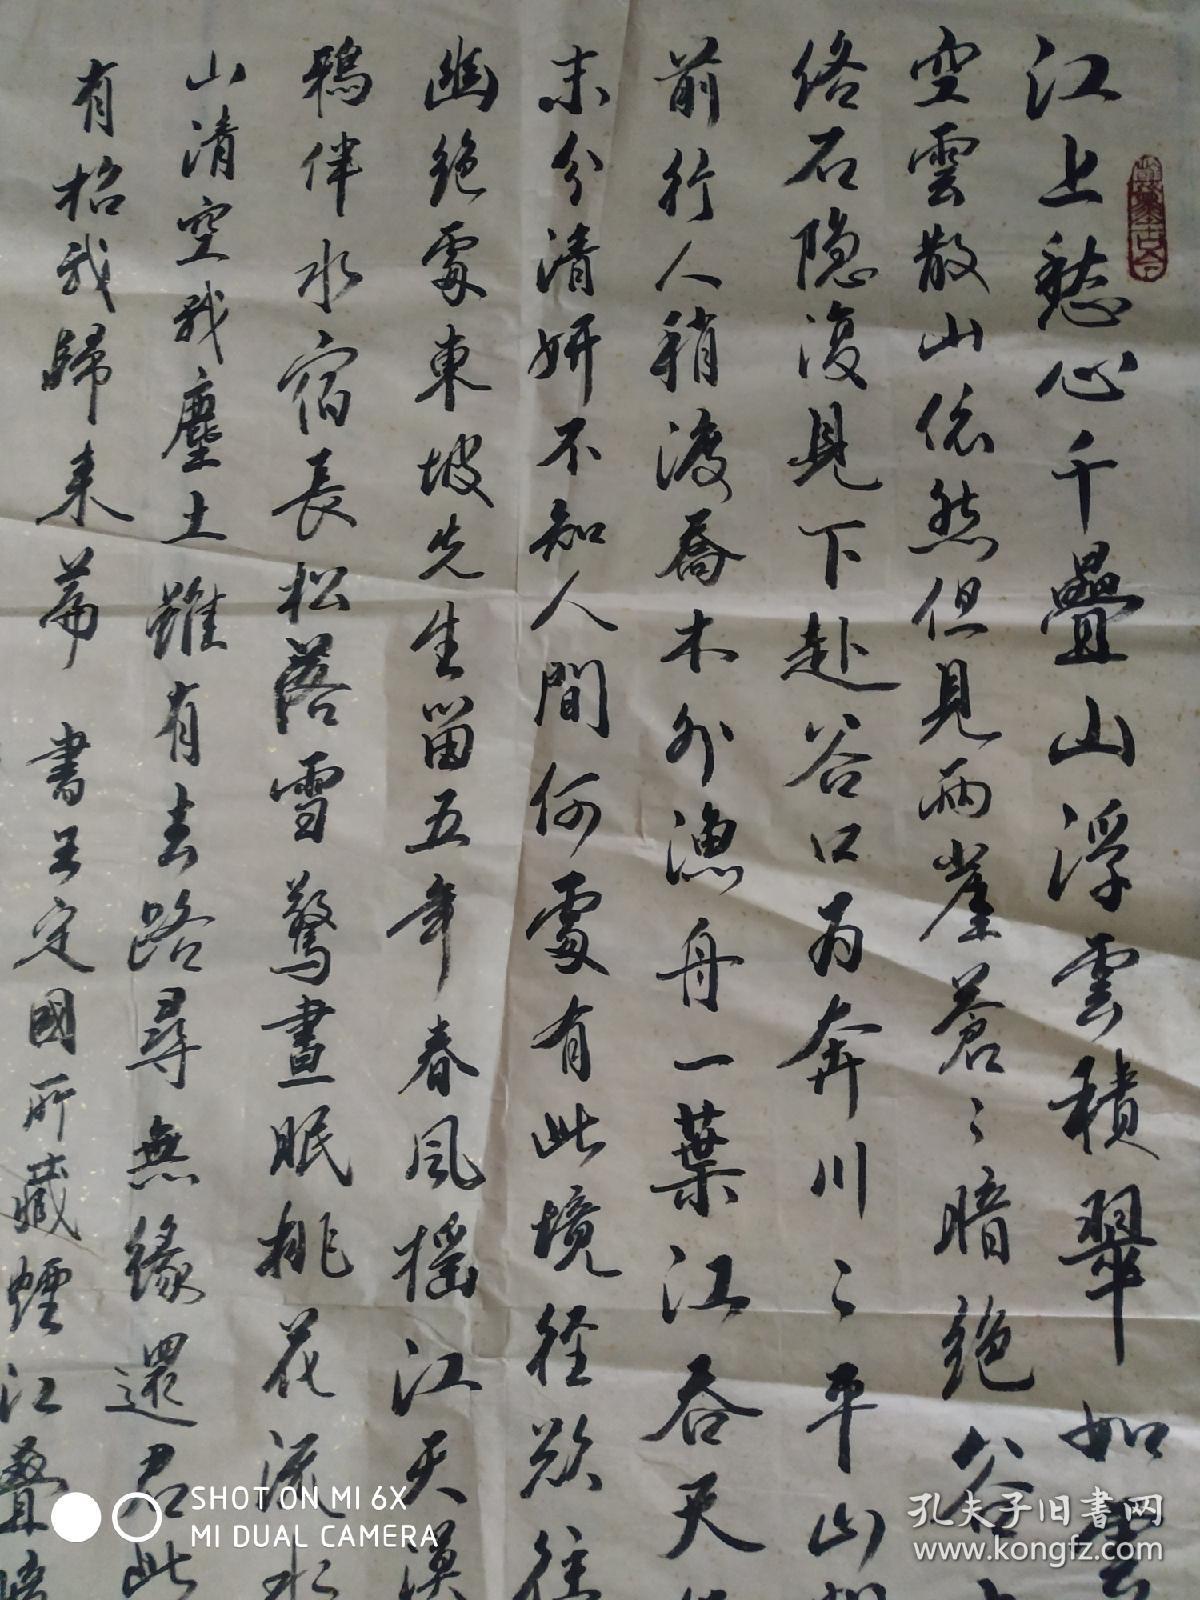 江上愁心千疊山浮雲積翠如雲
空雲散山依然但見兩崖蒼〻暗絕谷
络石隐復見下赴谷口為奔川〻平山
前行人稍渡喬木外漁舟一葉江吞天
末分清妍不知人間何處有此境径欲往
幽絕處東坡先生留五年春風摇江天漠
鴉伴水宿長松落雪驚晝眠桃花流水
山清空我塵土雖有去路尋無緣還君此
有招我歸来篇 書王定國所藏煙江疊嶂
SHOT ON MI 6X
MI DUAL CAMERA
孔夫子旧書网
www.kongfz.com